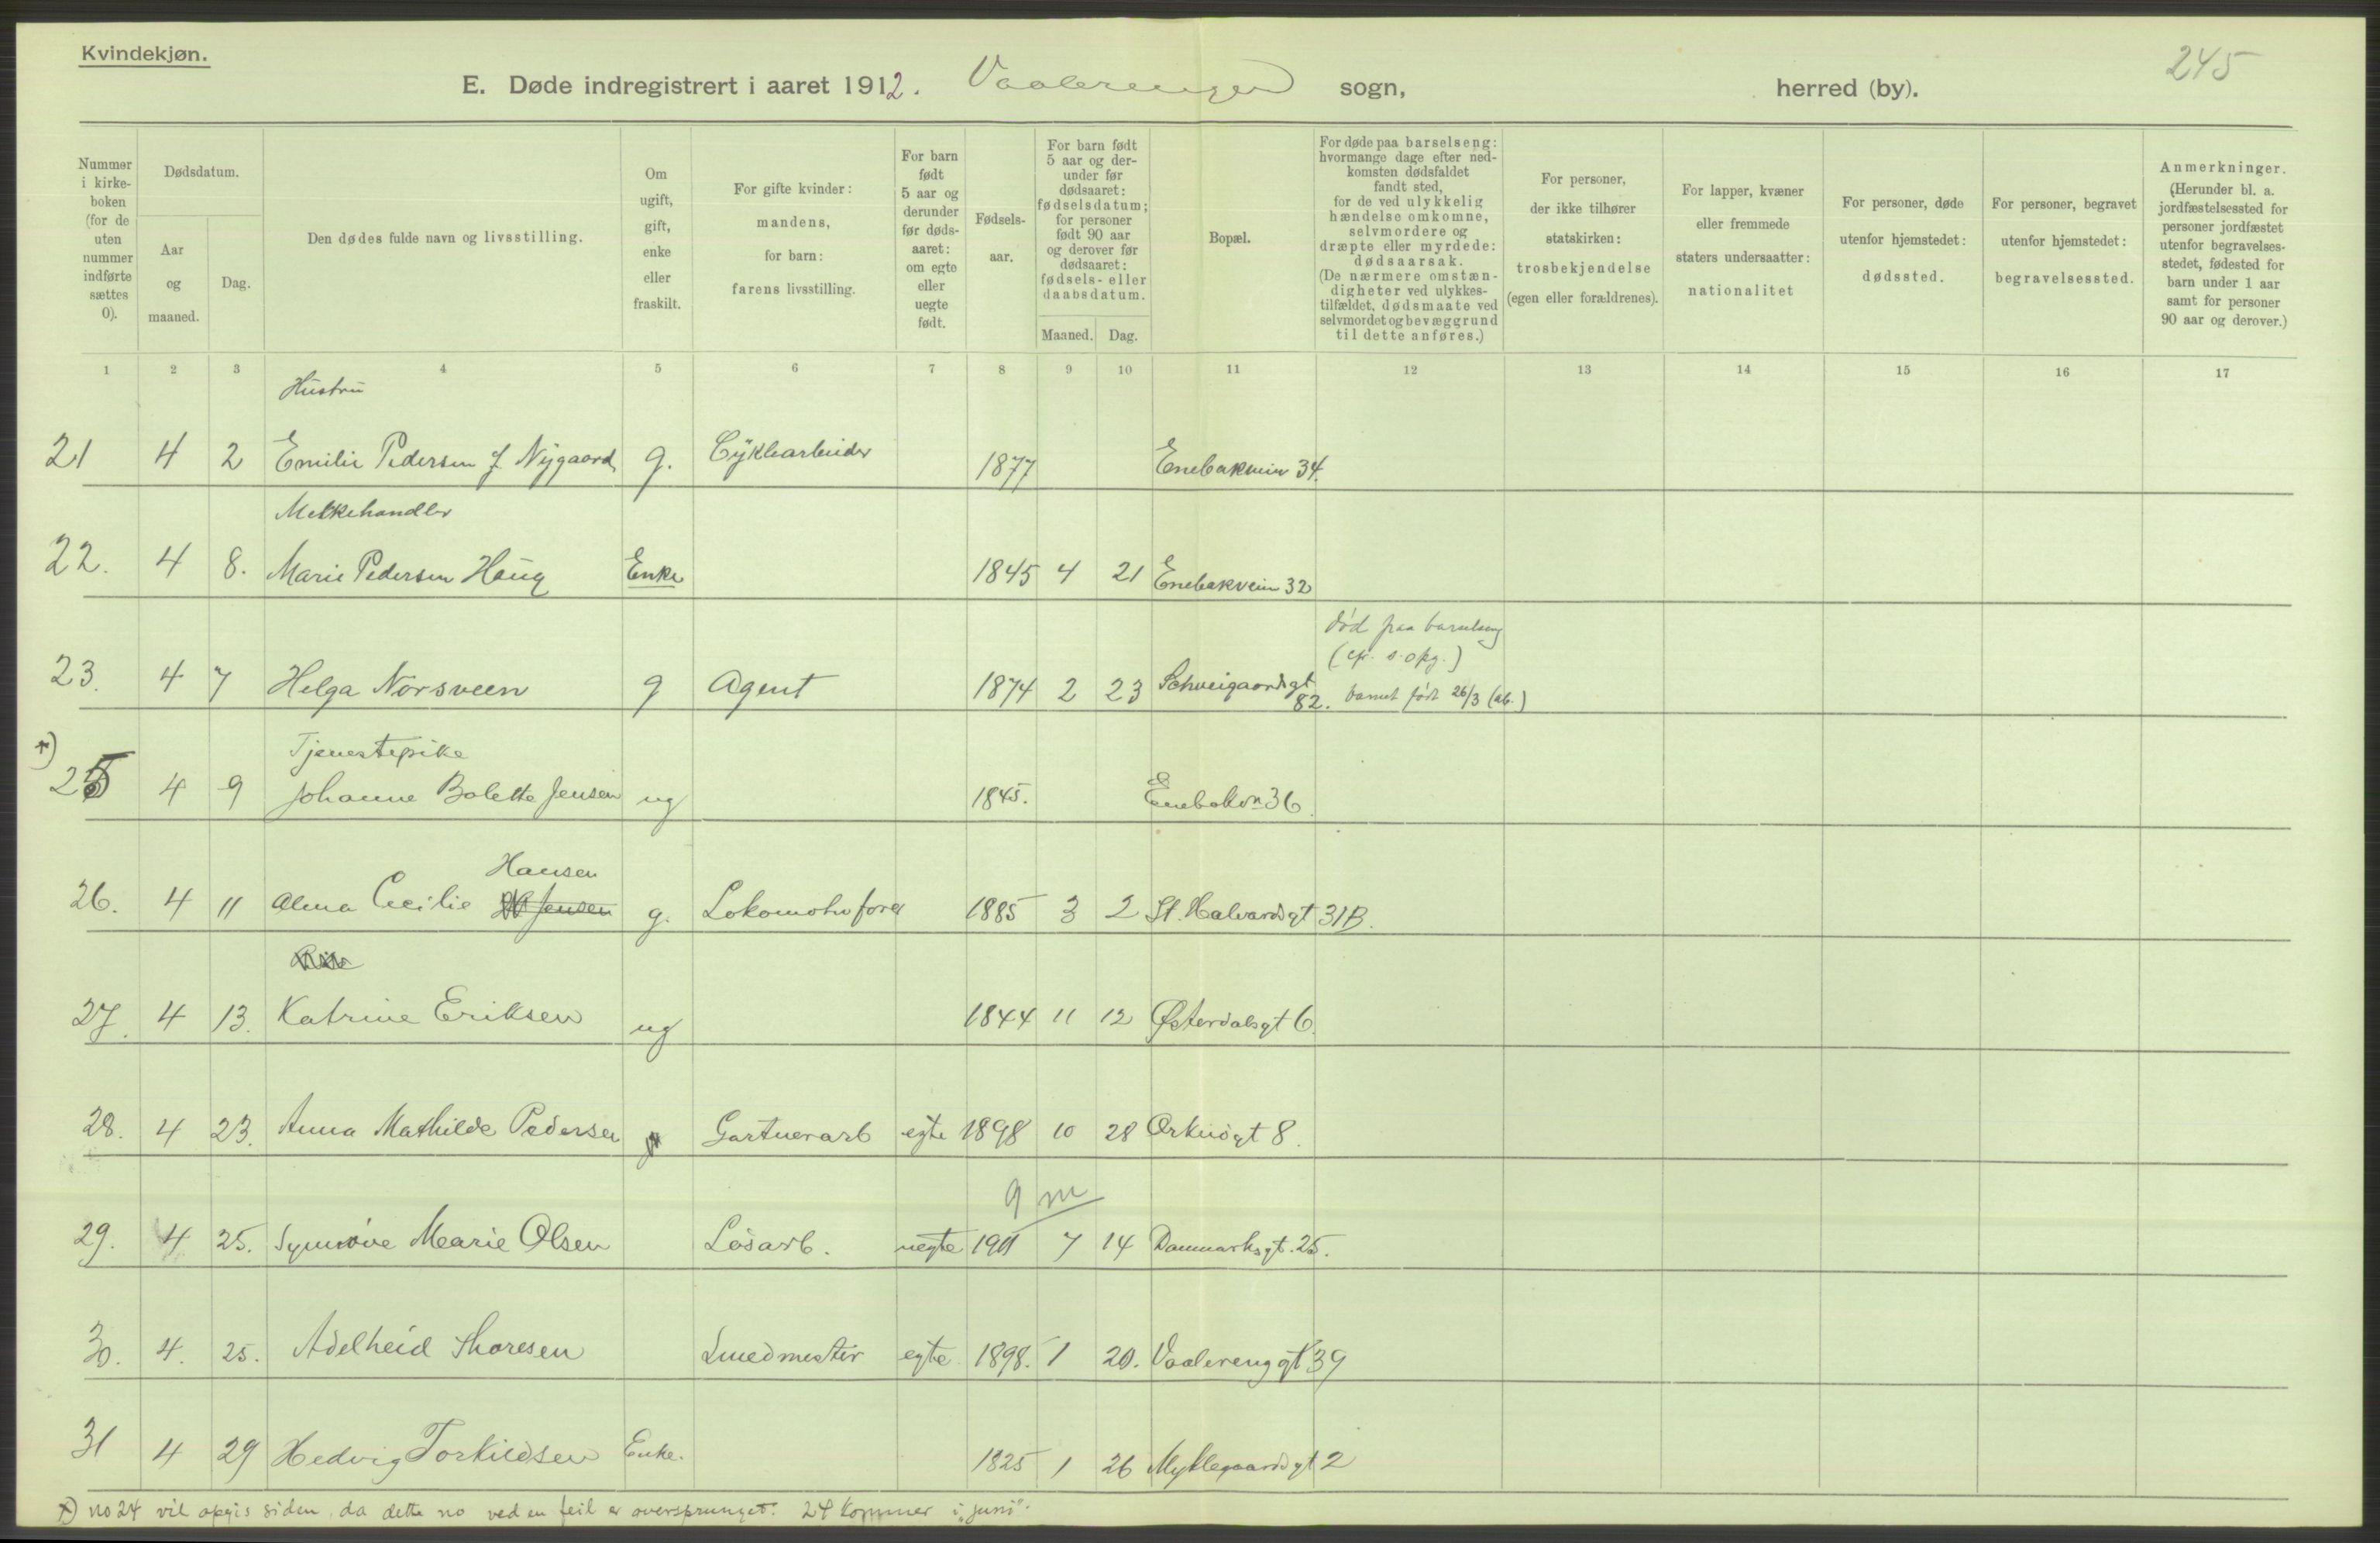 Kvindekjøn.
245
E. Døde indregistrert i aaret 1912. Vaalerengen sogn, herred (by).
Nummer i kirkeboken (for de uten nummer indførte sættes 0).
Dødsdatum.
Aar og maaned.
Dag.
Den dødes fulde navn og livsstilling.
Om ugift, gift, enke eller fraskilt.
For gifte kvinder: mandens, for barn: farens livsstilling.
For barn født 5 aar og derunder før dødsaaret: om egte eller uegte født.
Fødselsaar.
For barn født 5 aar og derunder før dødsaaret: fødselsdatum; for personer født 90 aar og derover før dødsaaret: fødsels- eller daabsdatum.
Maaned. Dag.
Bopæl.
For døde paa barselseng: hvormange dage efter nedkomsten dødsfaldet fandt sted, for de ved ulykkelig hændelse omkomne, selvmordere og dræpte eller myrdede: dødsaarsak. (De nærmere omstændigheter ved ulykkestilfældet, dødsmaate ved selvmordet og bevæggrund til dette anføres.)
For personer, der ikke tilhører statskirken: trosbekjendelse (egen eller forældrenes).
For lapper, kvæner eller fremmede staters undersaatter: nationalitet
For personer, døde utenfor hjemstedet: dødssted.
For personer, begravet utenfor hjemstedet: begravelsessted.
Anmerkninger. (Herunder bl. a. jordfæstelsessted for personer jordfæstet utenfor begravelsesstedet, fødested for barn under 1 aar samt for personer 90 aar og derover.)
1 2 3 4 5 6 7 8 9 10 11 12 13 14 15 16 17
Hustru
21 4 2 Emilie Pedersen f. Nygaard g. Cyklearbeider 1877 Enebakvein 34.
Melkehandler
22. 4 8. Marie Pedersen Haug Enke 1845 4 21 Enebakvein 32
død paa barselseng
23. 4 7 Helga Norsveen g Agent 1874 2 23 Schweigaardsgt 82. barnet født 26/3
Tjenestepike
x) 25 4 9 Johanne Bolette Jensen ug 1845. Enebakvn 36.
Hansen
26. 4 11 Alma Cecilie Jensen g. Lokomotivfører 1885 3 2 St. Halvardsgt 31B.
27. 4 13. Katrine Eriksen ug 1844 11 12 Østerdalsgt 6.
28. 4 23. Anna Mathilde Pedersen Gartnerarb egte 1898 10 28 Orknøgt 8.
9 m
29. 4 25. Synnøve Marie Olsen Løsarb. uegte 1911 7 14 Danmarksgt. 25.
30. 4. 25. Adelheid Thoresen Smedmester egte 1898. 1 20. Vaalerenggt 39
31 4 29 Hedvig Torkildsen Enke. 1825 1 26 Myklegaardsgt 2
x) no 24 vil opgis siden, da dette no ved en feil er oversprunget. 24 kommer i "juni".